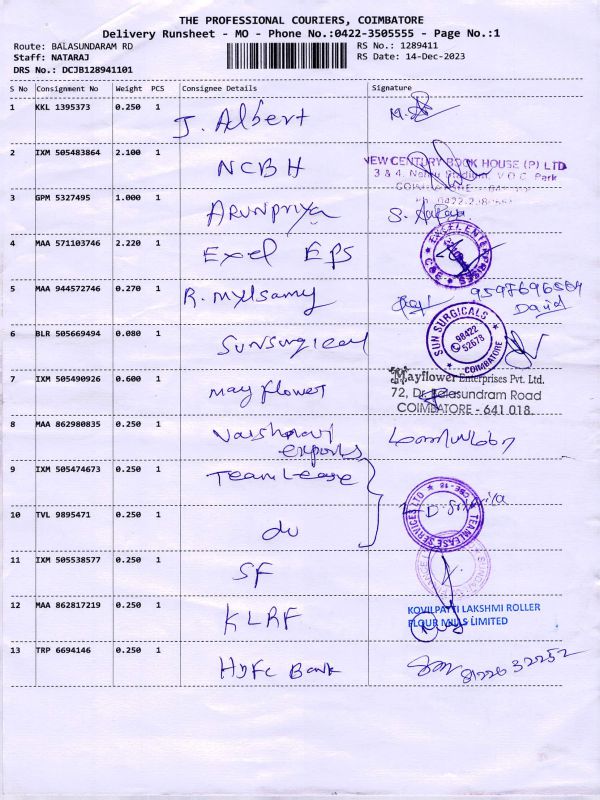 THE PROFESSIONAL COURIERS, COIMBATORE
Delivery Runsheet - MO - Phone No.:0422-3505555 - Page No.:1
Route: BALASUNDARAM RD
RS No.: 1289411
Staff: NATARAJ
RS Date: 14-Dec-2023
DRS No.: DCJB128941101
S No Consignment No Weight PCS Consignee Details Signature
1 KKL 1395373 0.250 1 J. Albert
2 IXM 505483864 2.100 1 NCBH
NEW CENTURY BOOK HOUSE (P) LTD
3 & 4, Nehru Stadium, V.O.C. Park
3 GPM 5327495 1.000 1 ARUNPRIYA
4 MAA 571103746 2.220 1 Excel EPS
EXCEL ENTERPRISES CBE
5 MAA 944572746 0.270 1 R. Mylsamy
David
6 BLR 505669494 0.080 1 Sunsurgical
SUN SURGICALS COIMBATORE 98422 52678
7 IXM 505490926 0.600 1 mayflower
Mayflower Enterprises Pvt. Ltd.
72, Dr. Balasundram Road
COIMBATORE - 641 018.
8 MAA 862980835 0.250 1 Vaishnavi
exports
9 IXM 505474673 0.250 1 TeamLease
TEAMLEASE SERVICES LTD CBE-18
10 TVL 9895471 0.250 1 do
11 IXM 505538577 0.250 1 SF
12 MAA 862817219 0.250 1 KLRF
KOVILPATTI LAKSHMI ROLLER
FLOUR MILLS LIMITED
13 TRP 6694146 0.250 1 HDFC Bank
8122632252